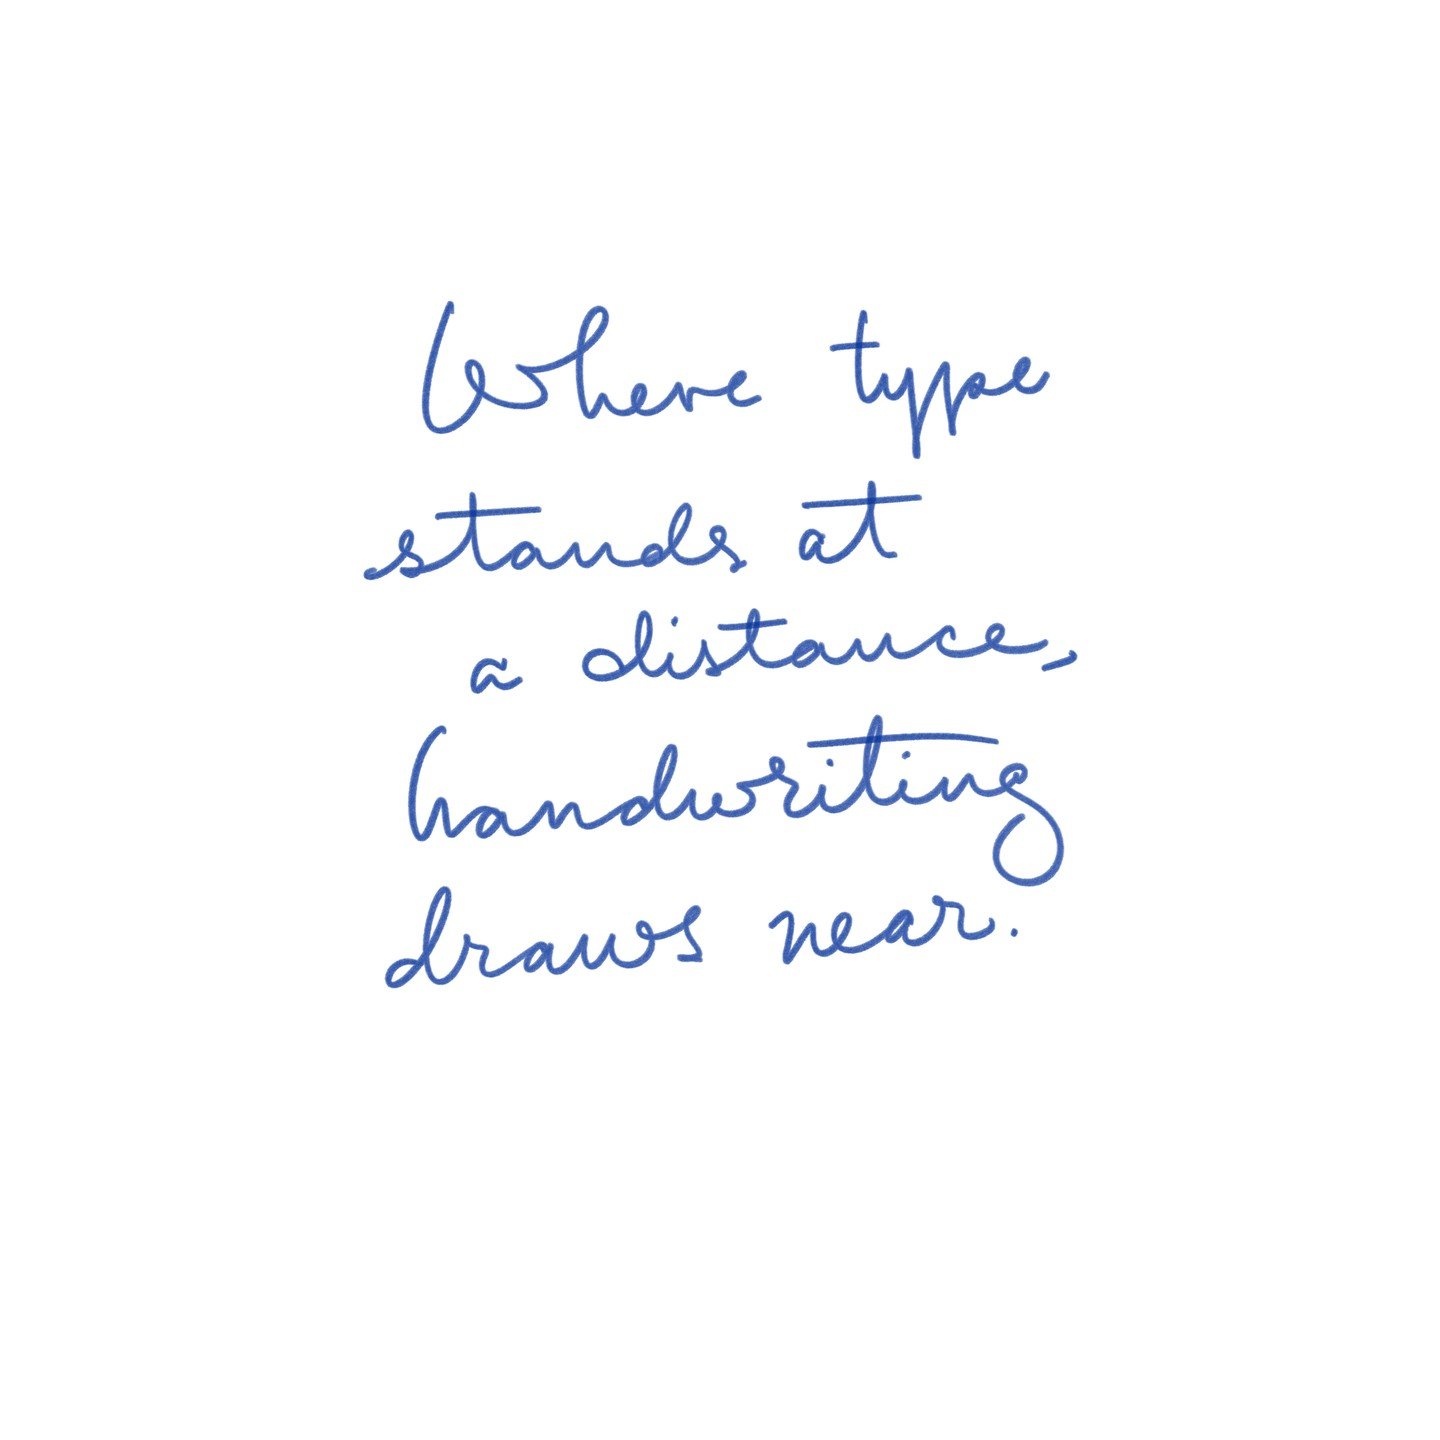 Where type
stands at
a distance,
handwriting
draws near.